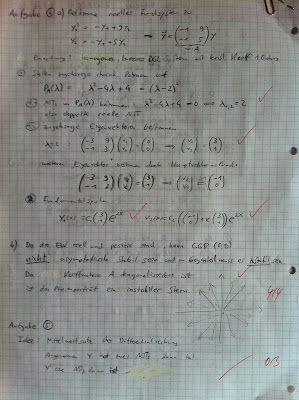 Aufgabe 4 a) Bestimme reelles Fundsystem zu
y₁' = -y₁ + 9y₂
y₂' = -y₁ + 5y₂
→ y' = (-1 9 / -1 5) y
=A
homogenes, lineares DGL-System mit konst. Koeff. 1. Ordnung
① Stelle zugehöriges charak. Polynom auf
P_A(λ) = λ² - 4λ + 4 = (λ-2)²
NST von P_A(λ) bestimmen: λ² - 4λ + 4 = 0 ⟹ λ₁,₂ = 2
also doppelte reelle NST
zugehörige Eigenvektoren bestimmen
λ₁,₂: (-3 9 / -1 3) (v₁ / v₂) = (0 / 0) → (v₁ / v₂) = (3 / 1)
weiteren Eigenvektor bestimmen durch Hauptvektor
(-3 9 / -1 3) (v₁ / v₂) = (3 / 1) → (v₁ / v₂) = (-1 / 0)
② Fundamentalsystem
y₁(x) = c₁ (3 / 1) e^2x y₂(x) = c₂ ((-1 / 0) + x (3 / 1)) e^2x
b) Da die EW reell und positiv sind, kann GGP (0,0)
nicht asymptotisch stabil sein und im Gegenteil muss es instabil sein
Da Koeffmatrix A diagonalisierbar ist
ist das Phasenporträt ein instabiler Stern.
4/4
Aufgabe 5
Idee: Mittelwertsatz der Differentialrechnung
Angenommen Y hat zwei NST, dann hat
0/3